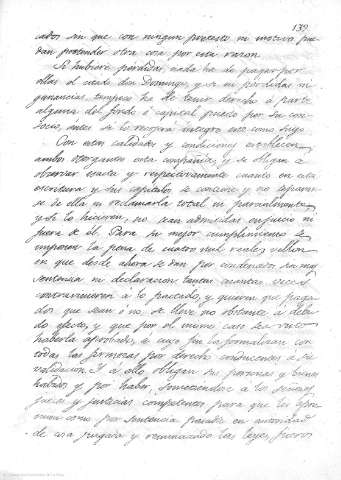 139
ados sin que con ningun pretexto ni motivo pue
dan pretender otra cosa por esta razon.
Si hubiere pérdidas, nada ha de pagar por
ellas el citado Don Domingo, y si ni pérdidas ni
ganancias, tampoco ha de tener derecho á parte
alguna del fondo ó capital puesto por su con
socio, antes si lo recojerá integro este como suyo.
Con estas calidades y condiciones establecen
ambos otorgantes esta compañia, y se obligan á
observar exacta y respectivamente cuanto en esta
escritura y sus capitulos se contiene y no separar
se de ella ni reclamarla total ni parcialmente
y si lo hicieren, no sean admitidos en juicio ni
fuera de él. Para su mejor cumplimiento se
imponen la pena de cuatro mil reales vellon
en que desde ahora se dan por condenados sin mas
sentencia ni declaracion tantas cuantas veces
contravinieren á lo pactado, y quieren que paga
dos que sean ó no, se lleve no obstante á debi
do efecto, y que por el mismo caso sea visto
haberla aprobado, á cuyo fin la formalizan con
todas las firmezas por derecho conducentes á su
validacion. Y á ello obligan sus personas y bienes
habidos y por haber, sometiendose á los Señores
Jueces y Justicias competentes para que les apre
mien como por sentencia pasada en autoridad
de cosa juzgada y renunciando las leyes, fueros